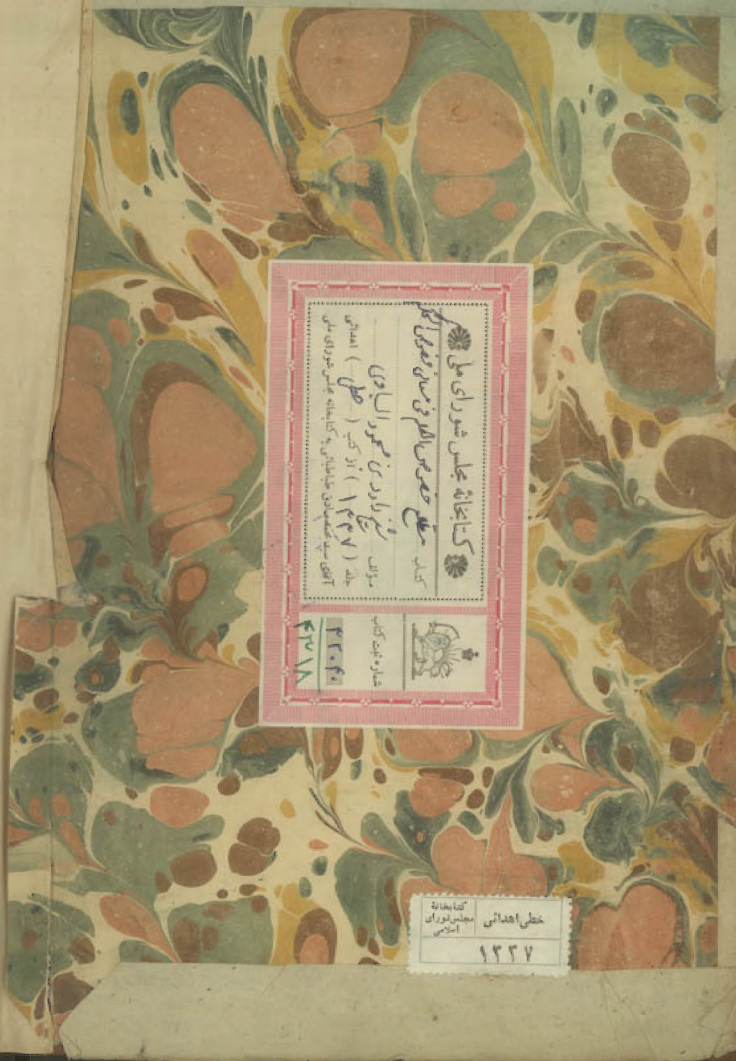 کتابخانهٔ مجلس شورای ملی
کتاب مطلع خصوص الکلم فی معانی فصوص الحکم
مؤلف شیخ داود بن محمود الساوی
جلد (۱۳۳۷) از کتب (خطی) اهدائی
آقای سید محمد صادق طباطبائی به کتابخانه مجلس شورای ملی
شماره ثبت کتاب
۴۳۰۴۰
۴۳۲۱۸
خطی اهدائی
کتابخانهٔ
مجلس شورای
اسلامی
۱۳۳۷